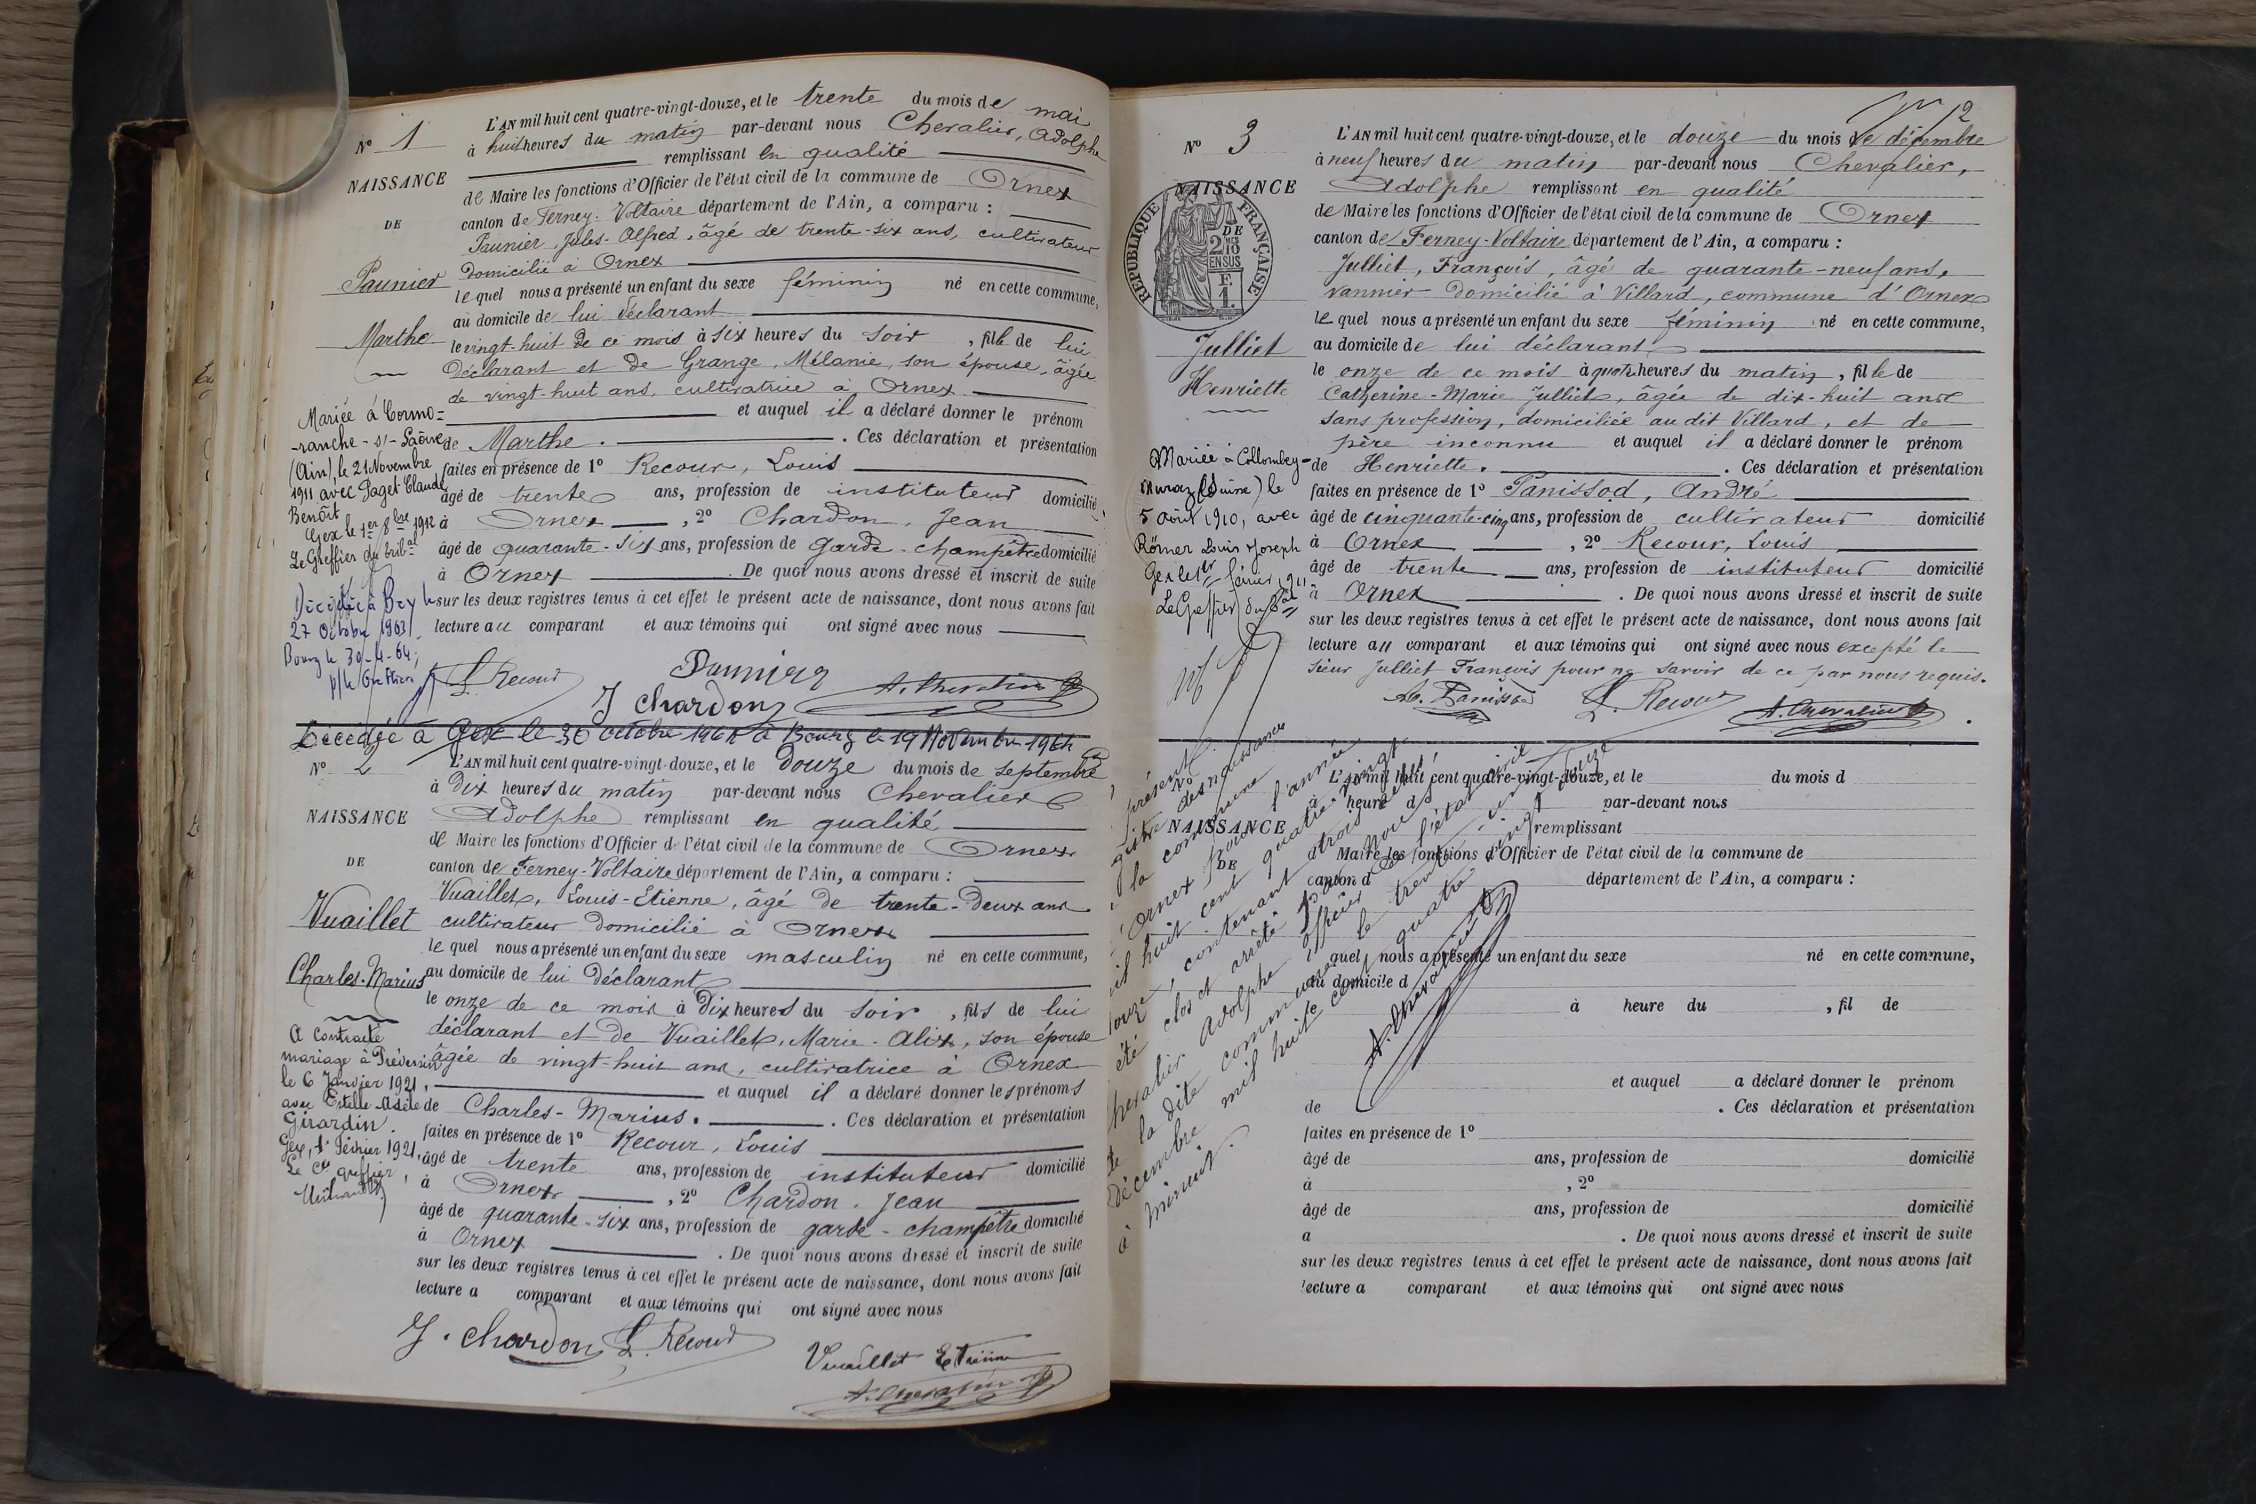 N° 1
NAISSANCE
DE
Paunier
Marthe
L'AN mil huit cent quatre-vingt-douze, et le trente du mois de mai
à huit heures du matin par-devant nous Chevalier, Adolphe
remplissant en qualité
de Maire les fonctions d'Officier de l'état civil de la commune de Ornex
canton de Ferney-Voltaire département de l'Ain, a comparu :
Paunier, Jules-Alfred, âgé de trente-six ans, cultivateur
domicilié à Ornex
lequel nous a présenté un enfant du sexe féminin né en cette commune,
au domicile de lui déclarant
le vingt-huit de ce mois à six heures du soir, fille de lui
déclarant et de Grange, Mélanie, son épouse, âgée
de vingt-huit ans, cultivatrice à Ornex.
et auquel il a déclaré donner le prénom
de Marthe. Ces déclaration et présentation
faites en présence de 1° Recour, Louis
âgé de trente ans, profession de instituteur domicilié
à Ornex, 2° Chardon, Jean
âgé de quarante-six ans, profession de garde-champêtre domicilié
à Ornex. De quoi nous avons dressé et inscrit de suite
sur les deux registres tenus à cet effet le présent acte de naissance, dont nous avons fait
lecture au comparant et aux témoins qui ont signé avec nous
L. Recour Paunier
J Chardon A. Chevalier
Mariée à Cormo=
-ranche-s/-Saône
(Ain), le 21 Novembre
1911 avec Paget Claude
Benoît
Gex le 1er 8bre 1912
Le Greffier du tribal
27 Octobre 1963
Bourg le 30-4-64;
p/le Greffier
Décédée à Gex le 30 octobre 1964 à Bourg le 19 Novembre 1964
N° 2
NAISSANCE
DE
Vuaillet
Charles-Marius
L'AN mil huit cent quatre-vingt-douze, et le douze du mois de septembre
à dix heures du matin par-devant nous Chevalier
Adolphe remplissant en qualité
de Maire les fonctions d'Officier de l'état civil de la commune de Ornex
canton de Ferney-Voltaire département de l'Ain, a comparu :
Vuaillet, Louis-Etienne, âgé de trente-deux ans
cultivateur domicilié à Ornex
lequel nous a présenté un enfant du sexe masculin né en cette commune,
au domicile de lui déclarant
le onze de ce mois à dix heures du soir, fils de lui
déclarant et de Vuaillet, Marie-Alix, son épouse
âgée de vingt-huit ans, cultivatrice à Ornex
et auquel il a déclaré donner les prénoms
de Charles-Marius. Ces déclaration et présentation
faites en présence de 1° Recour, Louis
âgé de trente ans, profession de instituteur domicilié
à Ornex, 2° Chardon, Jean
âgé de quarante-six ans, profession de garde-champêtre domicilié
à Ornex. De quoi nous avons dressé et inscrit de suite
sur les deux registres tenus à cet effet le présent acte de naissance, dont nous avons fait
lecture a comparant et aux témoins qui ont signé avec nous
J. Chardon L. Recour
Vuaillet Etienne
A. Chevalier
A contracté
mariage à Prévessin
le 6 Janvier 1921,
avec Estelle Adèle
Girardin.
Gex, 1er Février 1921,
Le Cis greffier,
12
N° 3
NAISSANCE
DE
RÉPUBLIQUE FRANÇAISE
2 10
EN SUS
F.
1.
Julliet
Henriette
L'AN mil huit cent quatre-vingt-douze, et le douze du mois de décembre
à neuf heures du matin par-devant nous Chevalier,
Adolphe remplissant en qualité
de Maire les fonctions d'Officier de l'état civil de la commune de Ornex
canton de Ferney-Voltaire département de l'Ain, a comparu :
Julliet, François, âgé de quarante-neuf ans,
vannier domicilié à Villard, commune d'Ornex
lequel nous a présenté un enfant du sexe féminin né en cette commune,
au domicile de lui déclarant
le onze de ce mois à quatre heures du matin, fille de
Catherine-Marie Julliet, âgée de dix-huit ans
sans profession, domiciliée au dit Villard, et de
père inconnu et auquel il a déclaré donner le prénom
de Henriette. Ces déclaration et présentation
faites en présence de 1° Panissod, André
âgé de cinquante-cinq ans, profession de cultivateur domicilié
à Ornex, 2° Recour, Louis
âgé de trente ans, profession de instituteur domicilié
à Ornex. De quoi nous avons dressé et inscrit de suite
sur les deux registres tenus à cet effet le présent acte de naissance, dont nous avons fait
lecture au comparant et aux témoins qui ont signé avec nous excepté le
sieur Julliet François pour ne savoir de ce par nous requis.
A. Panissod L. Recour A. Chevalier
Mariée à Collombey-
Muraz (Suisse) le
5 Août 1910, avec
Römer Louis Joseph
Gex le 1er février 1911
Le Greffier du Bal
N°
NAISSANCE
DE
L'AN mil huit cent quatre-vingt-douze, et le du mois d
à heure d par-devant nous
remplissant
Maire les fonctions d'Officier de l'état civil de la commune de
canton d département de l'Ain, a comparu :
quel nous a présenté un enfant du sexe né en cette commune,
au domicile d
le à heure du , fil de
et auquel a déclaré donner le prénom
de . Ces déclaration et présentation
faites en présence de 1°
âgé de ans, profession de domicilié
à , 2°
âgé de ans, profession de domicilié
a . De quoi nous avons dressé et inscrit de suite
sur les deux registres tenus à cet effet le présent acte de naissance, dont nous avons fait
lecture a comparant et aux témoins qui ont signé avec nous
présent
gistre des naissances
la commune
Ornex, pour l'année
mil huit cent quatre-vingt
douze, contenant trois actes
été clos et arrêté par nous
Chevalier Adolphe officier de l'état civil
de la dite commune le trente-un
décembre mil huit cent quatre vingt douze
à minuit.
A. Chevalier